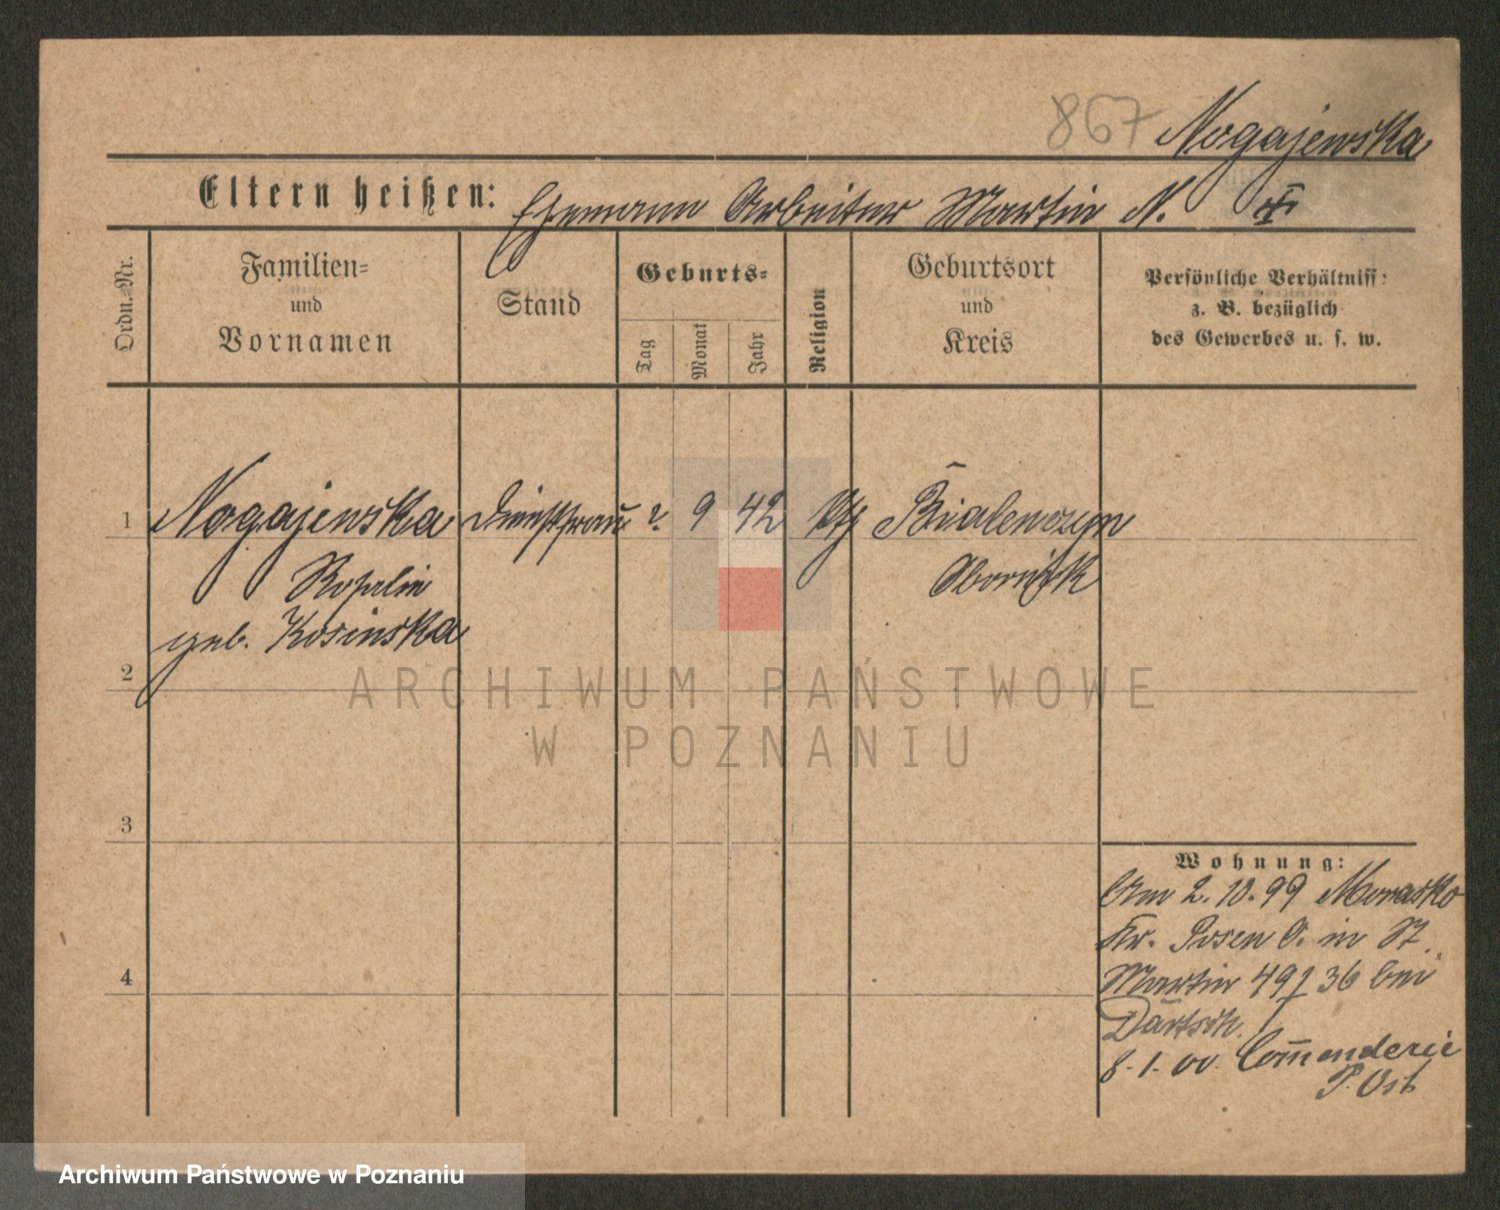 867 Nogajewska
Eltern heißen: Ehemann Arbeiter Martin N. ✝
Ordn.-Nr.
Familien-
und
Vornamen
Stand
Geburts-
Tag
Monat
Jahr
Religion
Geburtsort
und
Kreis
Persönliche Verhältniss
z. B. bezüglich
des Gewerbes u. s. w.
1 Nogajewska Dienstfrau ?. 9 42 kth Bialenczyn
Rosalie Obornik
geb. Kosinska
2
3
4
Wohnung:
Am 2. 10. 99 Morasko
Kr. Posen O. in St.
Martin 49/36 bei
8. 1. 00 Com̅enderie
P. Ost
ARCHIWUM PAŃSTWOWE
W POZNANIU
Archiwum Państwowe w Poznaniu